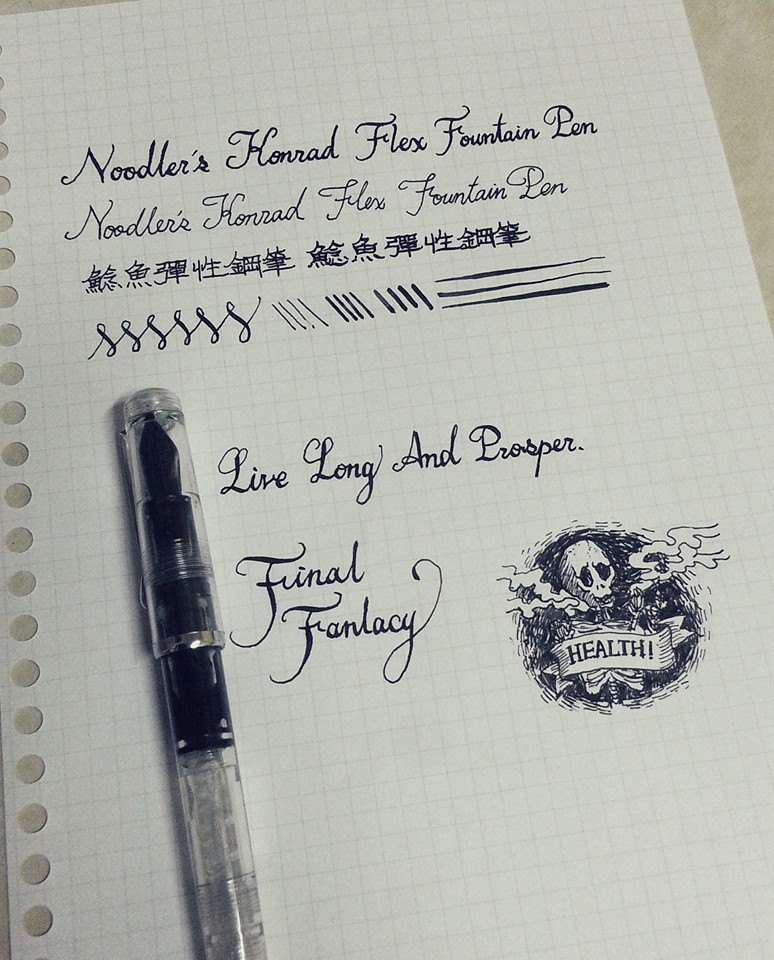 Noodler's Konrad Flex Fountain Pen
Noodler's Konrad Flex Fountain Pen
鯰魚彈性鋼筆 鯰魚彈性鋼筆
Live Long And Prosper.
Final
Fantacy
HEALTH!